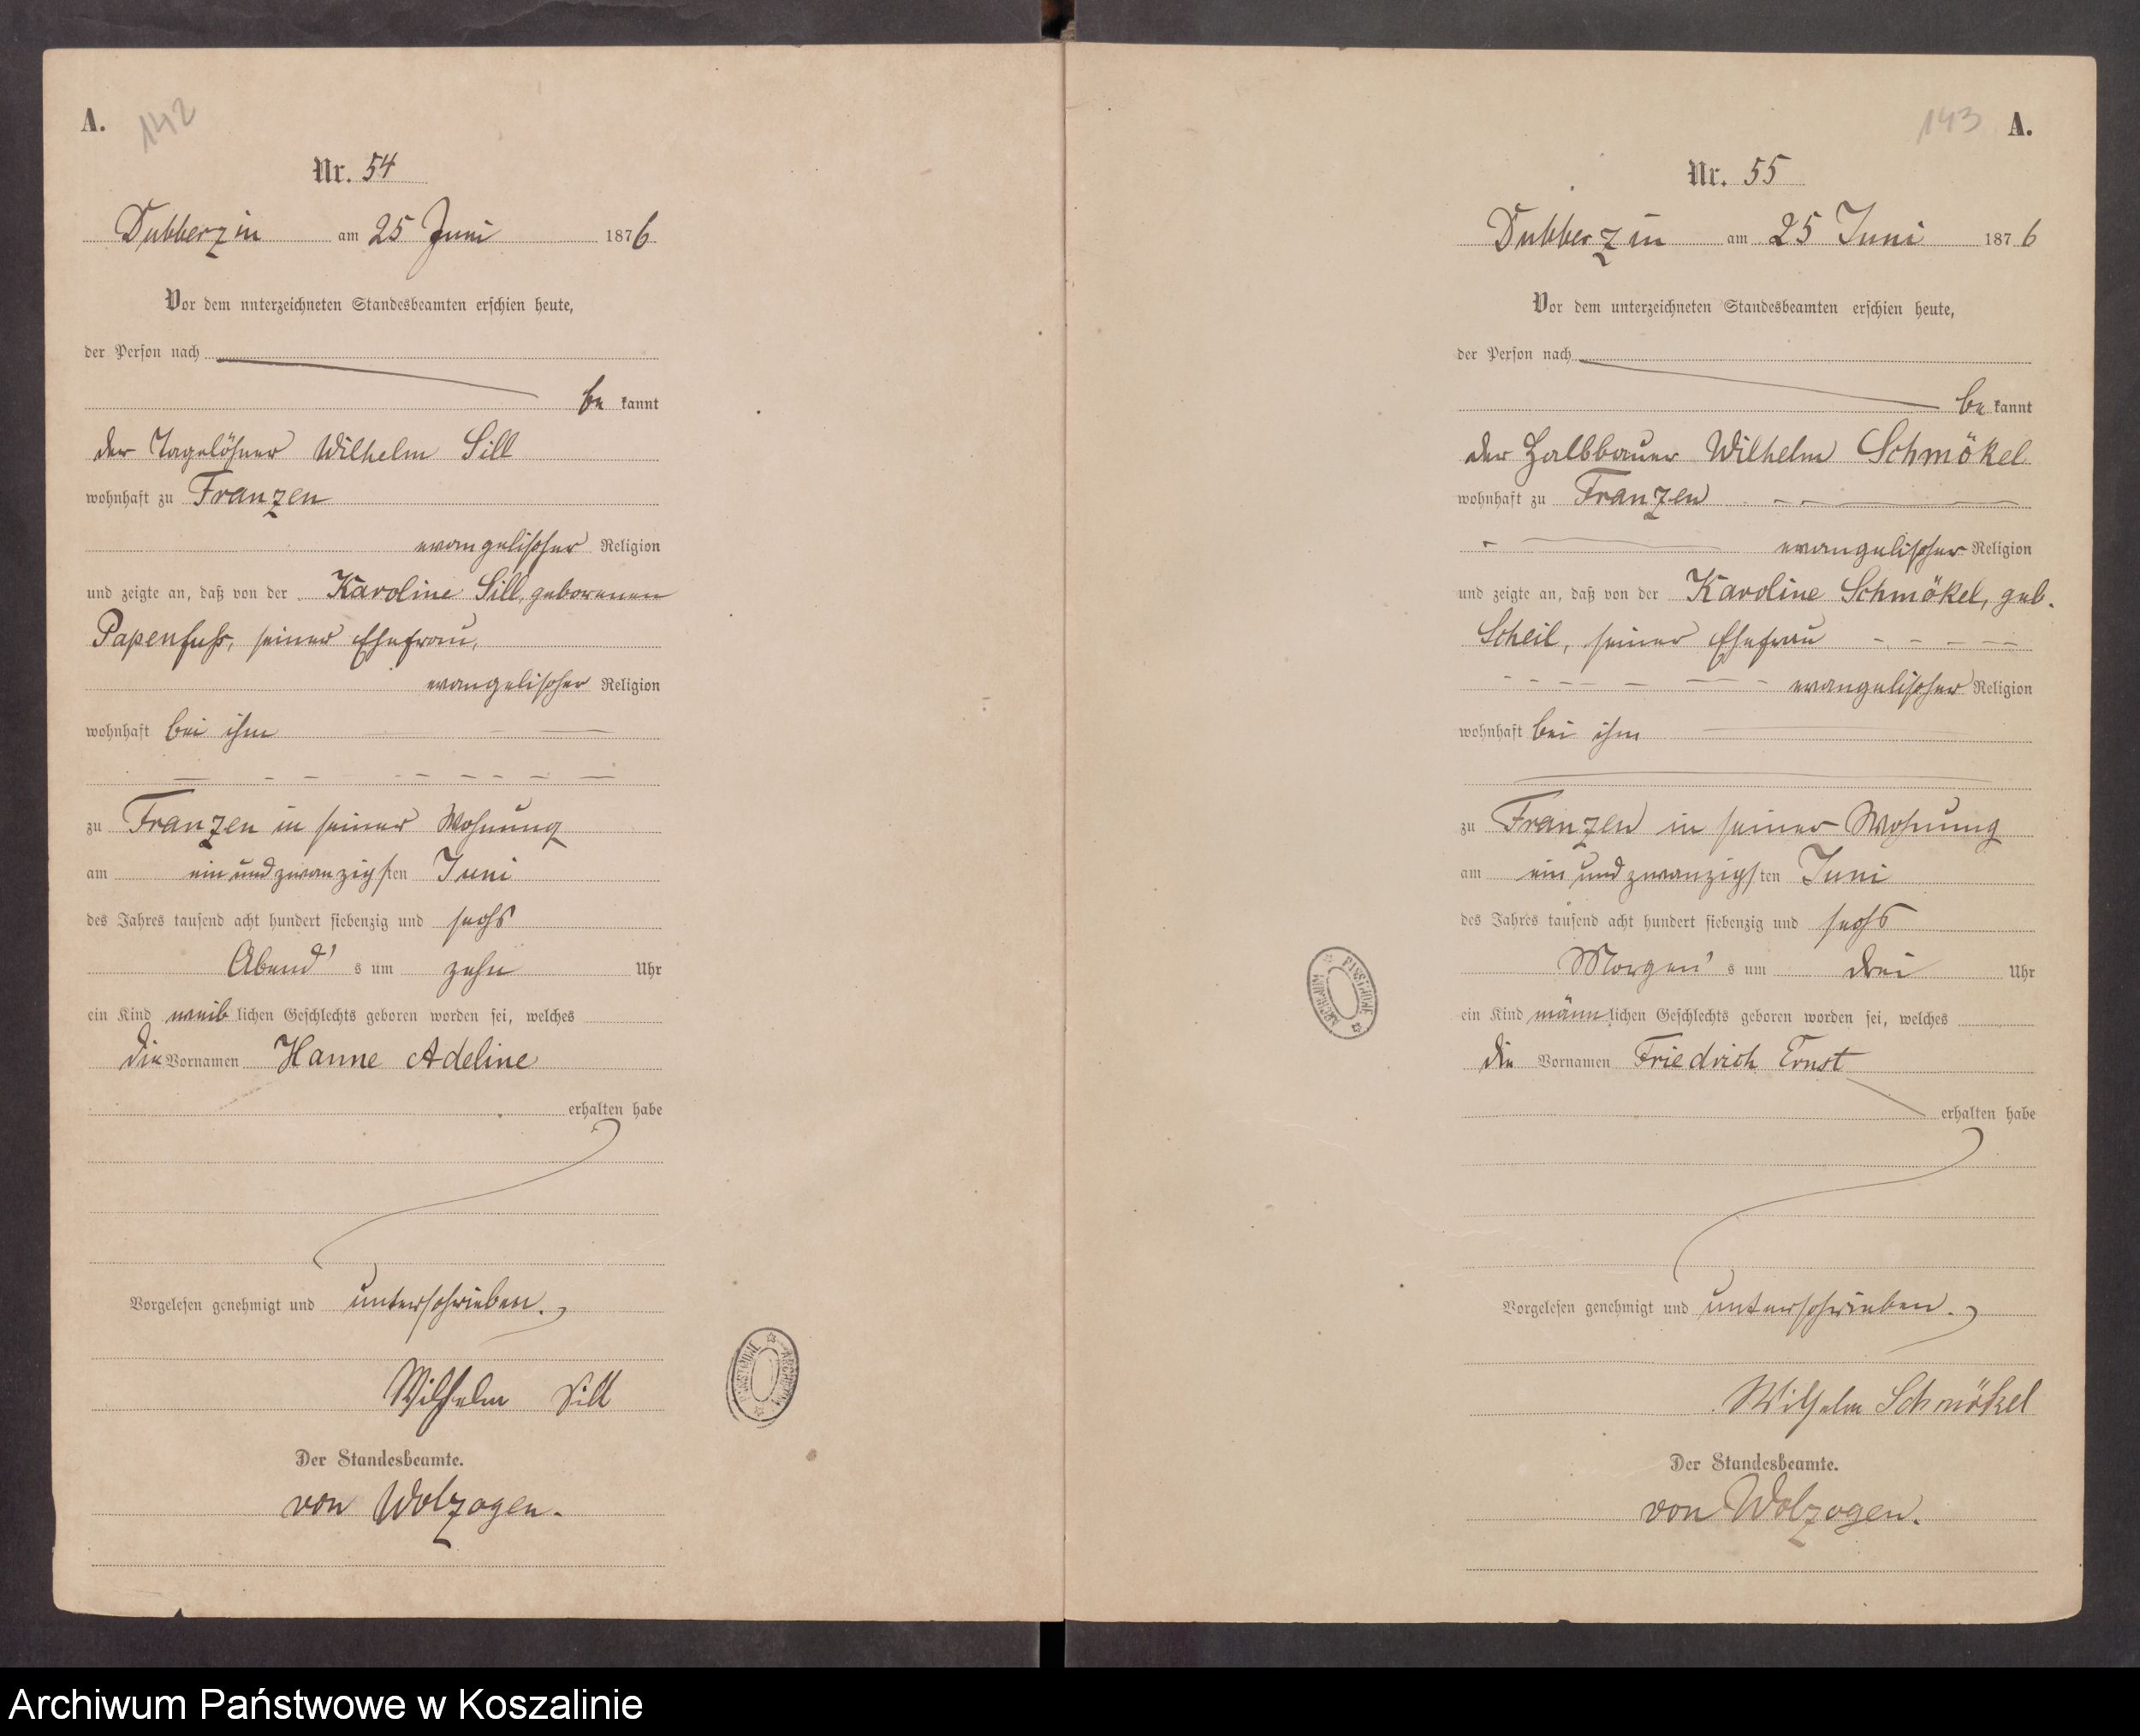 A. 142
Nr. 54
Dubberzin am 25 Juni 1876
Vor dem unterzeichneten Standesbeamten erschien heute,
der Person nach
be kannt
der Tagelöhner Wilhelm Sill
wohnhaft zu Franzen
evangelischer Religion
und zeigte an, daß von der Karoline Sill, geborenen
Papenfuß, seiner Ehefrau,
evangelischer Religion
wohnhaft bei ihm
zu Franzen in seiner Wohnung
am ein und zwanzigsten Juni
des Jahres tausend acht hundert siebenzig und sechs
Abend's um zehn Uhr
ein Kind weiblichen Geschlechts geboren worden sei, welches
die Vornamen Hanne Adeline
erhalten habe
Vorgelesen genehmigt und unterschrieben.
Wilhelm Sill
Der Standesbeamte.
von Wolzogen.
143 A.
Nr. 55
Dubberzin am 25 Juni 1876
Vor dem unterzeichneten Standesbeamten erschien heute,
der Person nach
be kannt
der Halbbauer Wilhelm Schmökel
wohnhaft zu Franzen
evangelischer Religion
und zeigte an, daß von der Karoline Schmökel, geb.
Scheil, seiner Ehefrau
evangelischer Religion
wohnhaft bei ihm
zu Franzen in seiner Wohnung
am ein und zwanzigsten Juni
des Jahres tausend acht hundert siebenzig und sechs
Morgen's um drei Uhr
ein Kind männlichen Geschlechts geboren worden sei, welches
die Vornamen Friedrich Ernst
erhalten habe
Vorgelesen genehmigt und unterschrieben.
Wilhelm Schmökel
Der Standesbeamte.
von Wolzogen.
Archiwum Państwowe w Koszalinie